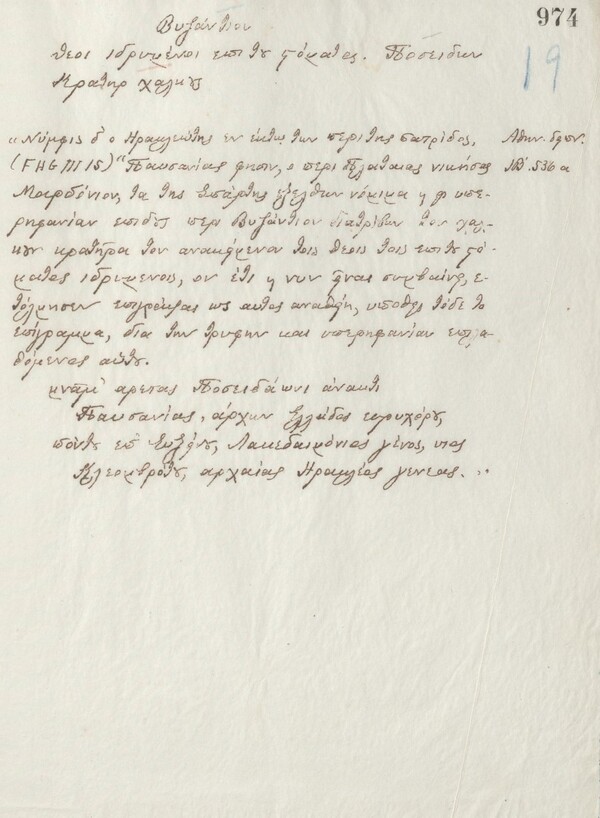 974
19
Βυζάντιον
θεοι ιδρυμένοι επι του στόματος. Ποσειδων
Κρατηρ χαλκους
"Νύμφις δ' ο Ηρακλεώτης εν έκτω των περι της πατρίδος, Αθην. δειπν.
(FHG III 15) "Παυσανίας φησιν, ο περι Πλαταιας νικήσας ΙΒ' 536 a
Μαρδόνιον, τα της Σπάρτης εξελθων νόμιμα και εις υπε-
ρηφανίαν επιδους περι Βυζάντιον διατρίβων τον χαλ-
κουν κρατηρα τον ανακείμενον τοις θεοις τοις επι του στό-
ματος ιδρυμενοις, ον έτι και νυν είναι συμβαίνει, ε-
τόλμησεν επιγράψαι ως αυτος αναθείη, υποθεις τόδε το
επίγραμμα, δια την τρυφην και υπερηφανίαν επιλα-
θόμενος αυτου.
μναμ' αρετας Ποσειδάωνι άνακτι
Παυσανίας, άρχων Ελλάδος ευρυχόρου,
πόντου επ' Ευξείνου, Λακεδαιμόνιος γένος, υιος
Κλεομβρότου, αρχαίας Ηρακλέος γενεας.